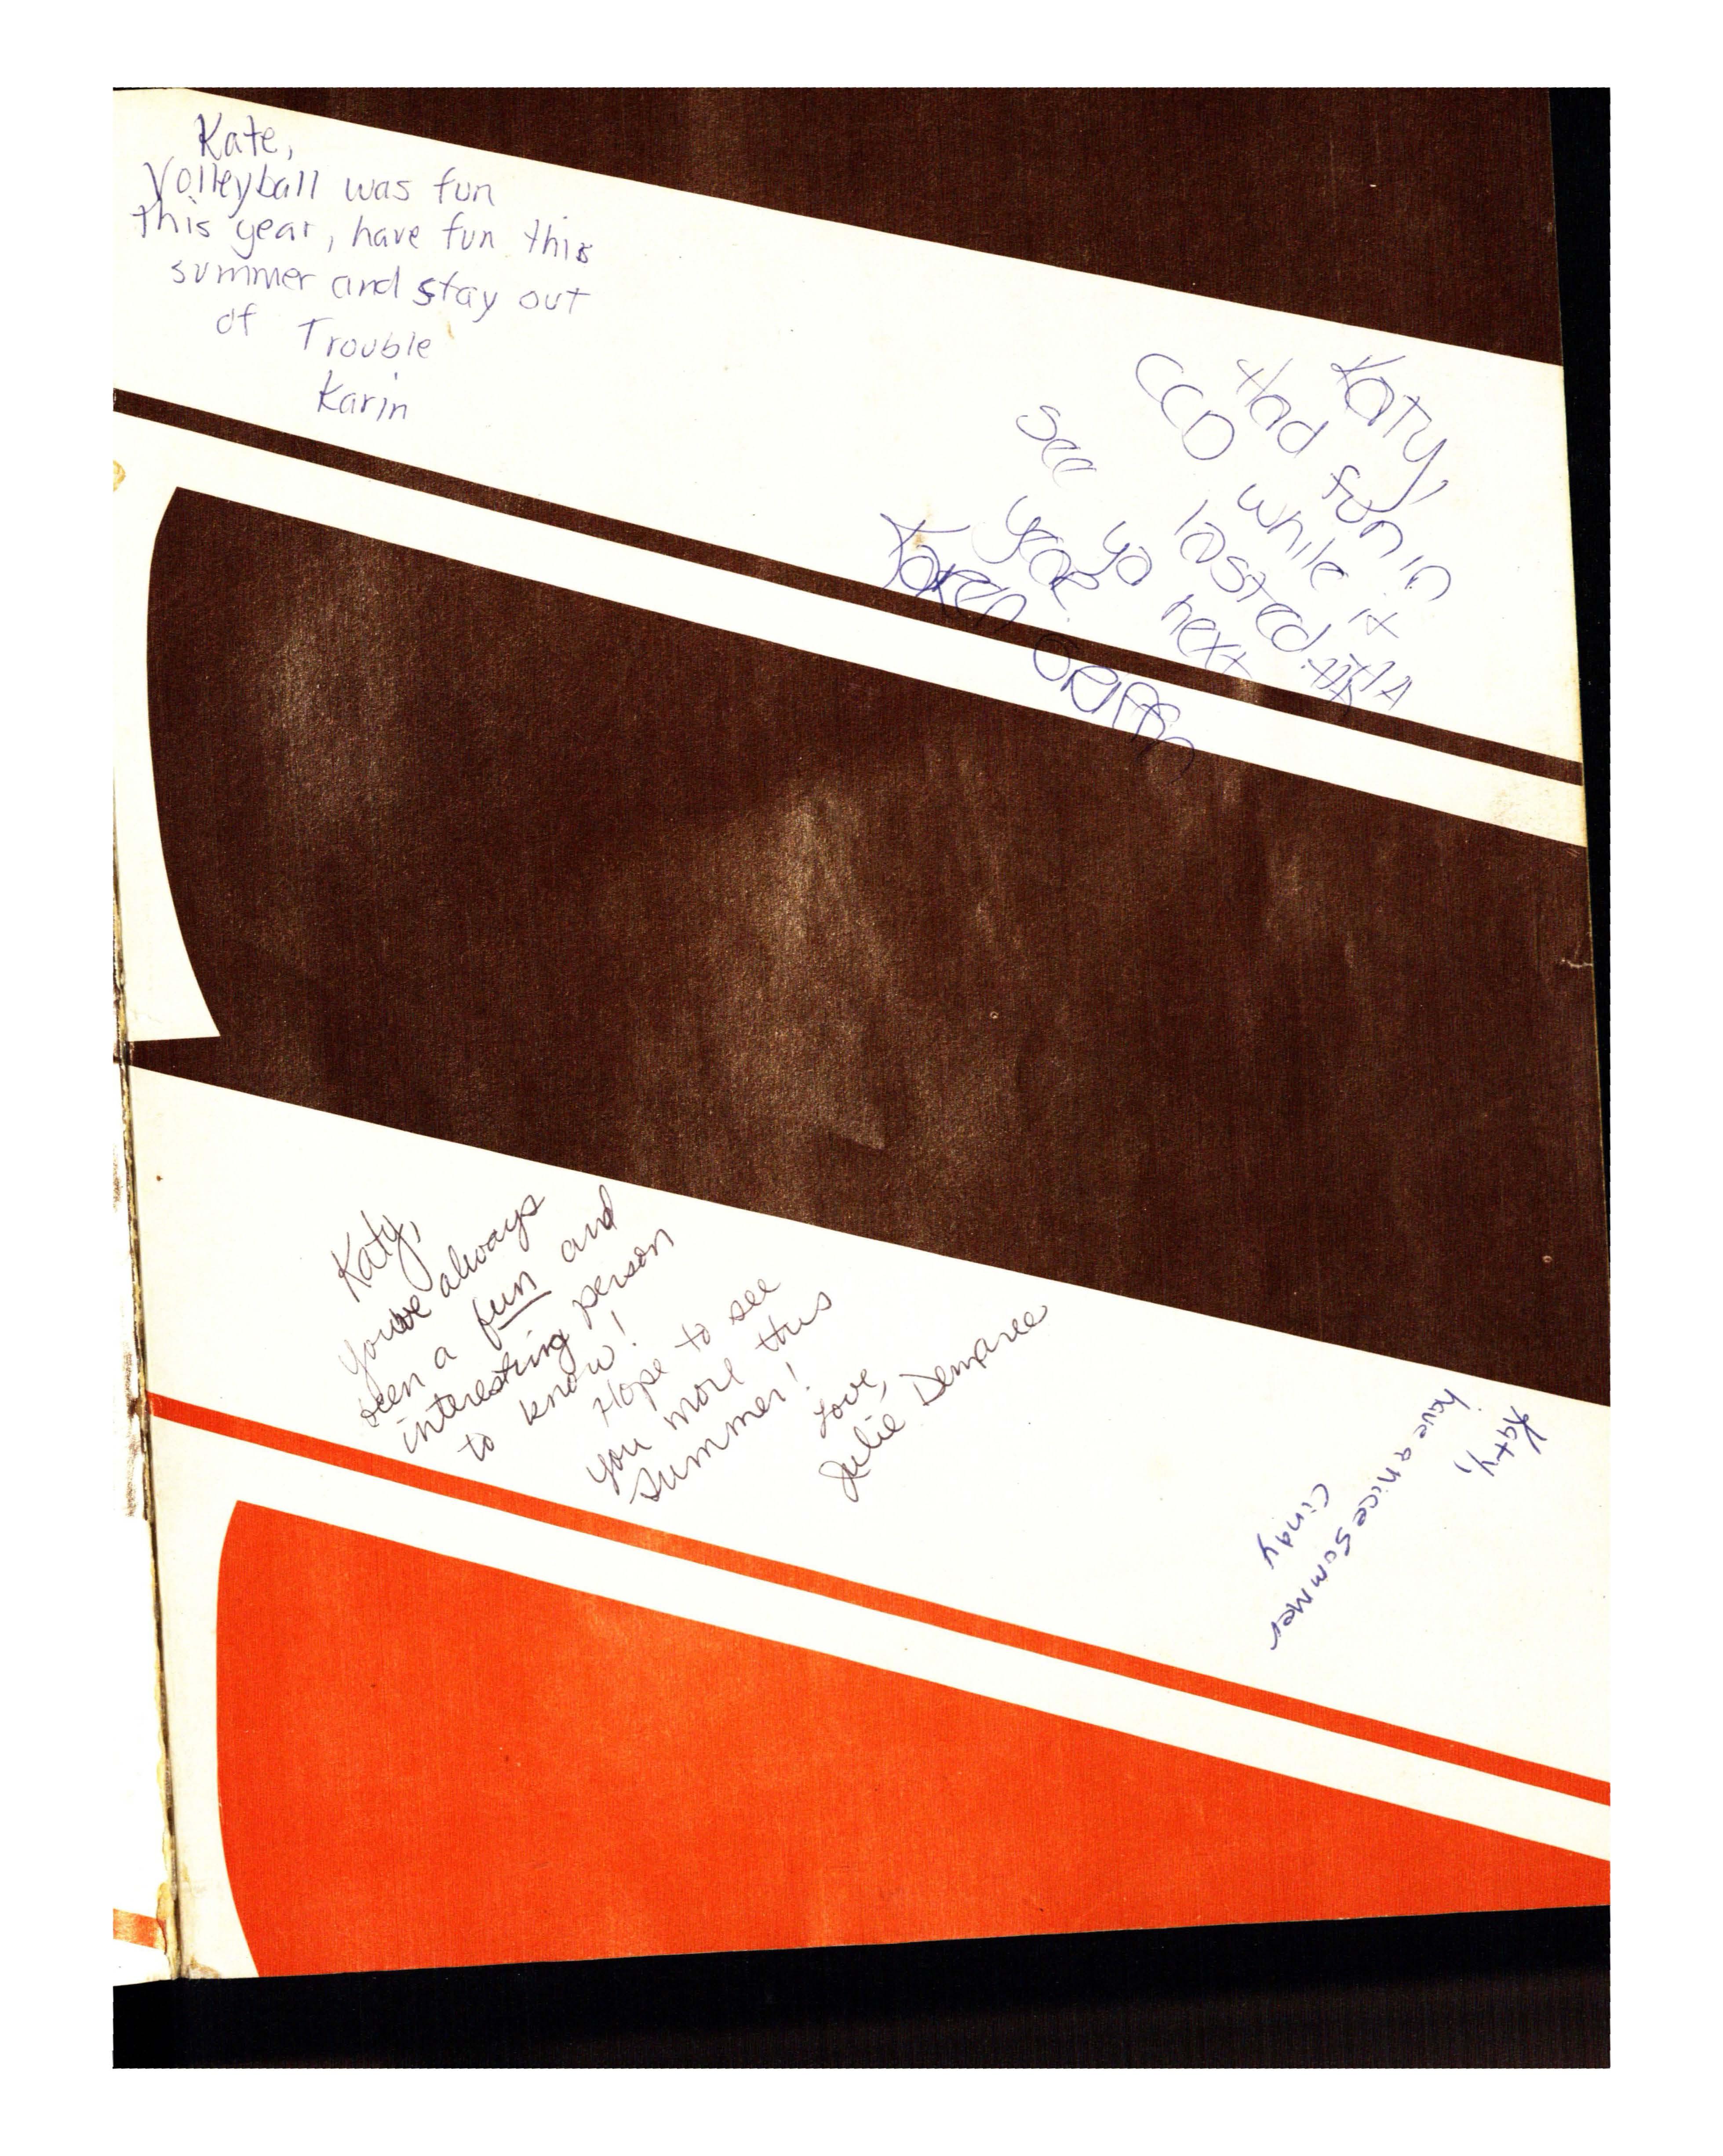 Kate,
Volleyball was fun
this year, have fun this
summer and stay out
of Trouble
Karin
Katy,
Had fun in
CCD while it
lasted.
See ya next
year.
Karen Griffin
Katy,
You've always
been a fun and
interesting person
to know!
Hope to see
you more this
summer!
Love,
Julie Demaree
Katy,
have a nice summer
Cindy